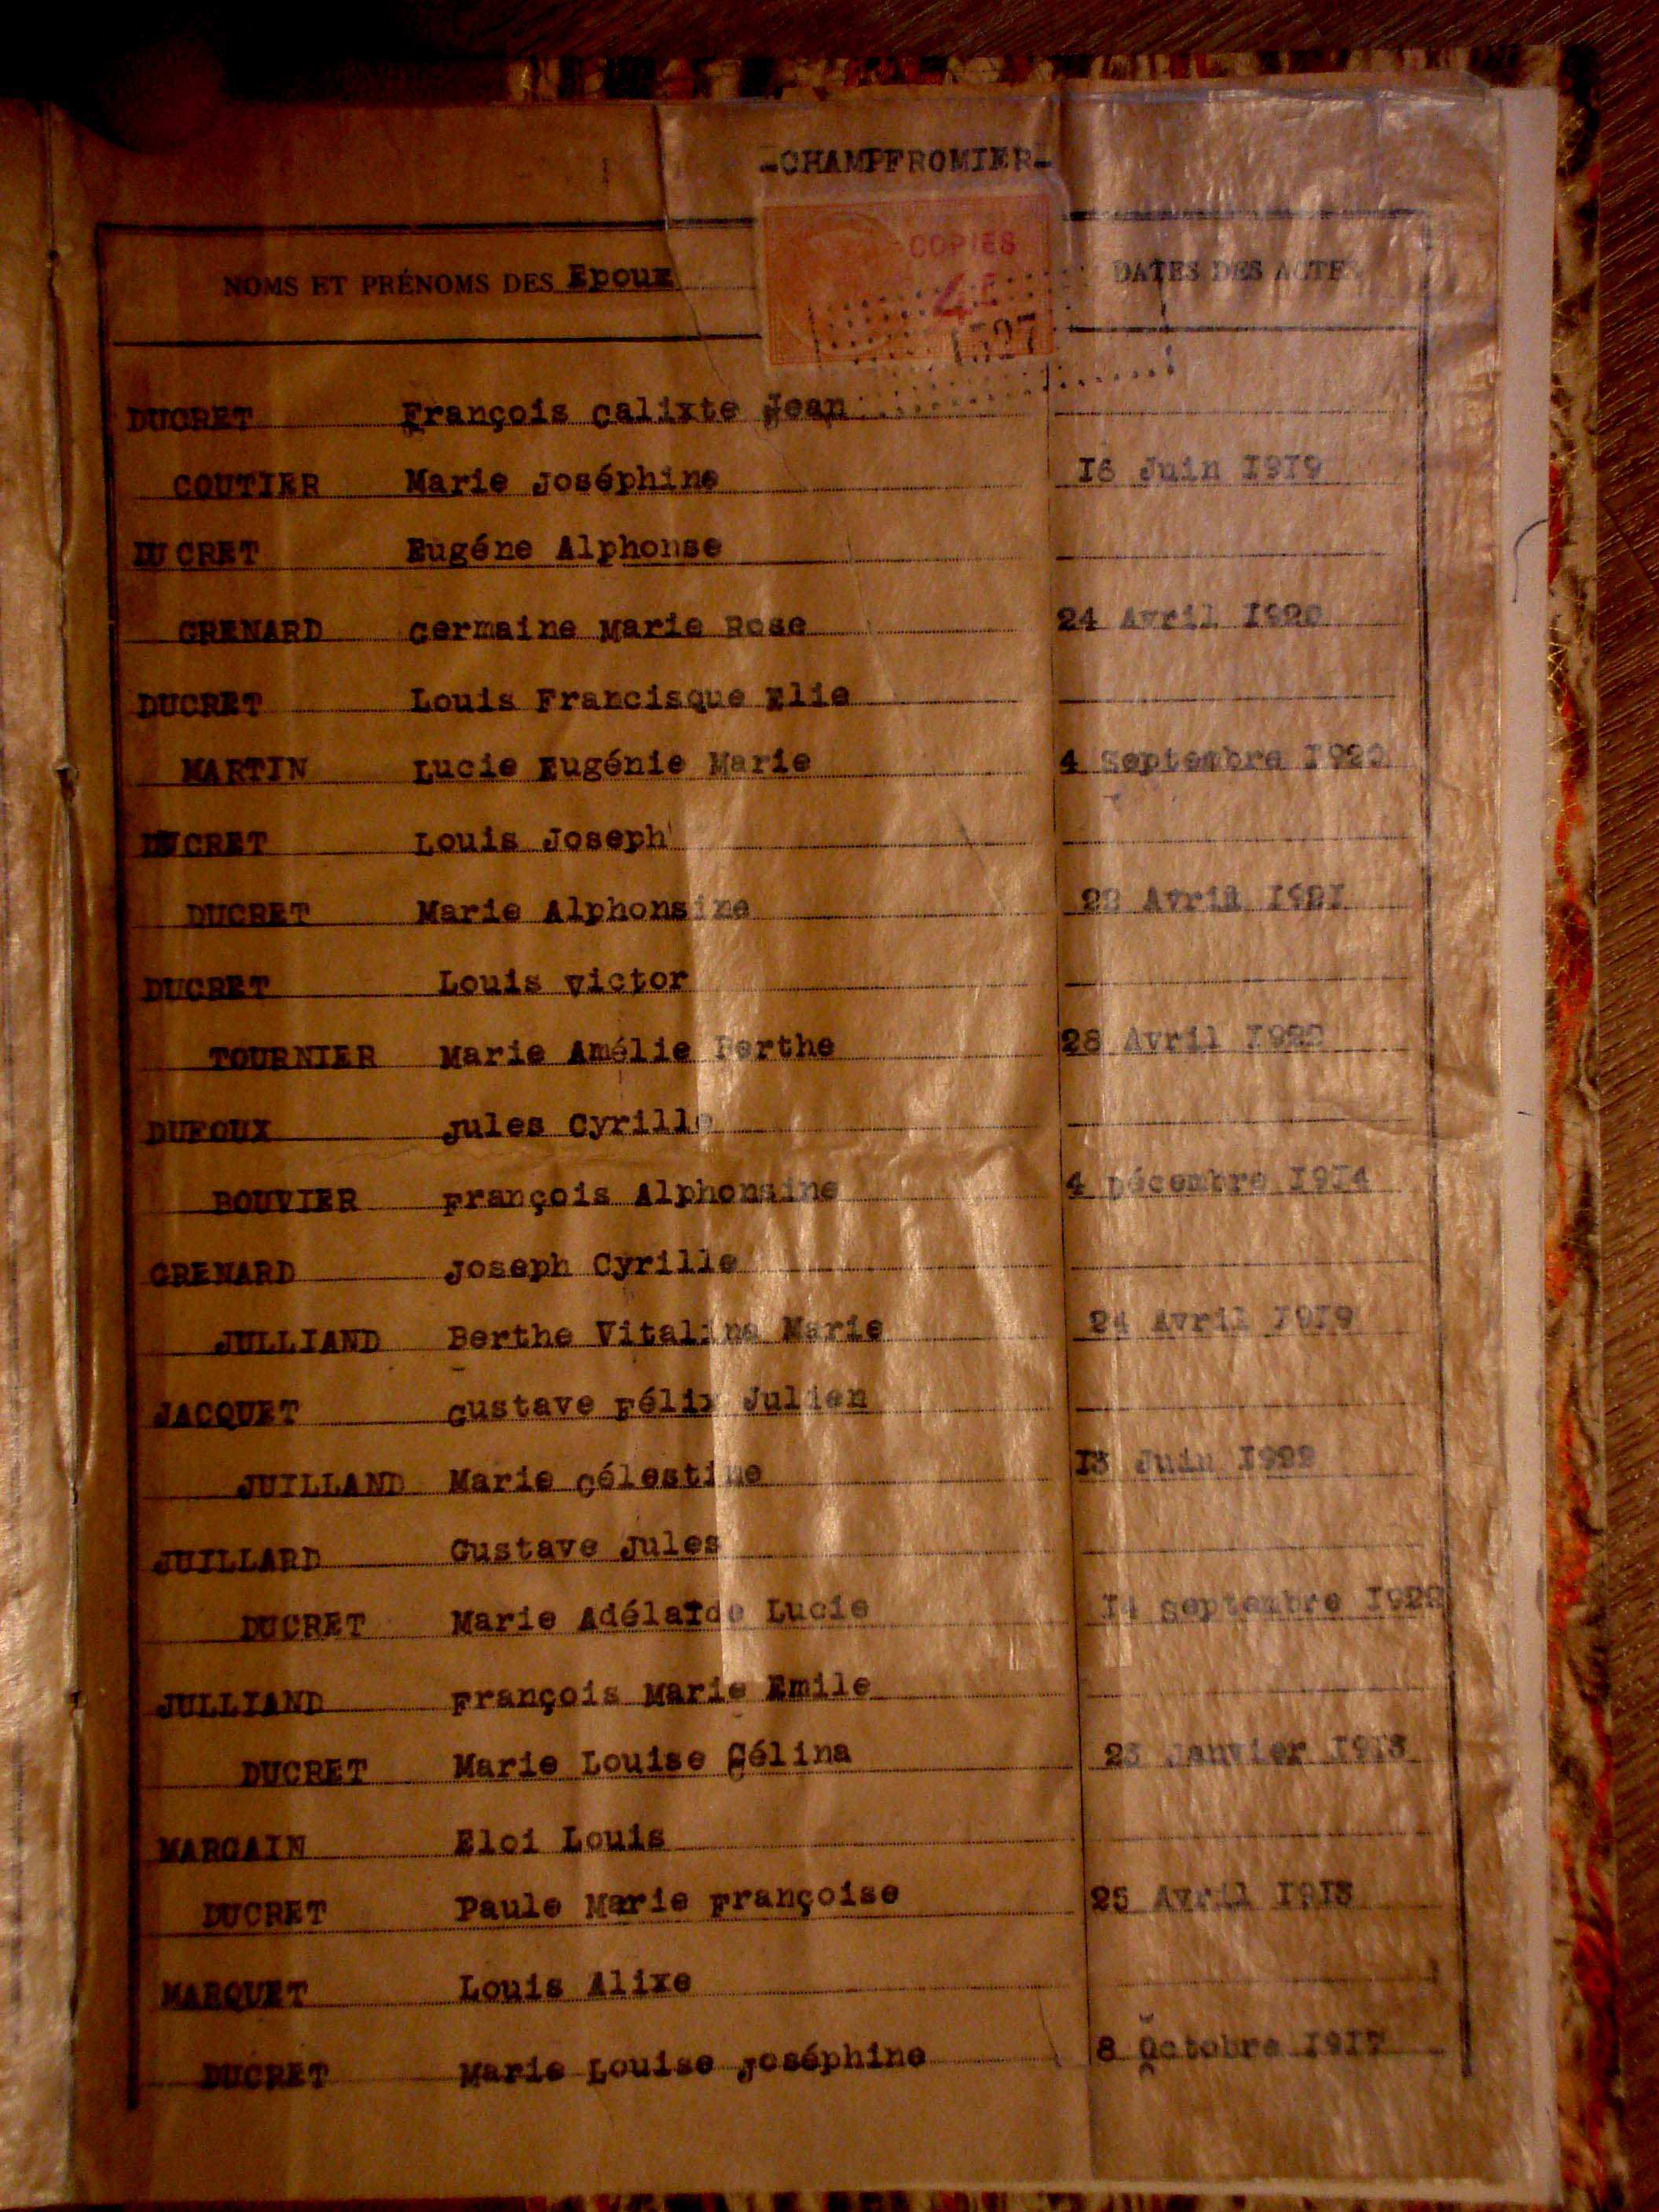 -CHAMPFROMIER-
COPIES
NOMS ET PRÉNOMS DES Epoux DATES DES ACTES
DUCRET François Calixte Jean
COUTIER Marie Joséphine 16 Juin 1919
DUCRET Eugéne Alphonse
GRENARD Germaine Marie Rose 24 Avril 1920
DUCRET Louis Francisque Elie
MARTIN Lucie Eugénie Marie 4 Septembre 1920
DUCRET Louis Joseph
DUCRET Marie Alphonsine Avril 1921
DUCRET Louis Victor
TOURNIER Marie Amélie Berthe 28 Avril 1922
DUFOUX Jules Cyrille
BOUVIER François Alphonsine 4 Décembre 1914
GRENARD Joseph Cyrille
JULLIAND Berthe Vitaline Marie 24 Avril 1919
JACQUET Gustave Félix Julien
JUILLAND Marie Célestine 13 Juin 1922
JUILLARD Gustave Jules
DUCRET Marie Adélaïde Lucie 14 Septembre 1922
JULLIAND François Marie Emile
DUCRET Marie Louise Célina 23 Janvier 1913
MARGAIN Eloi Louis
DUCRET Paule Marie Françoise 25 Avril 1913
MARQUET Louis Alixe
DUCRET Marie Louise Joséphine 8 Octobre 1917